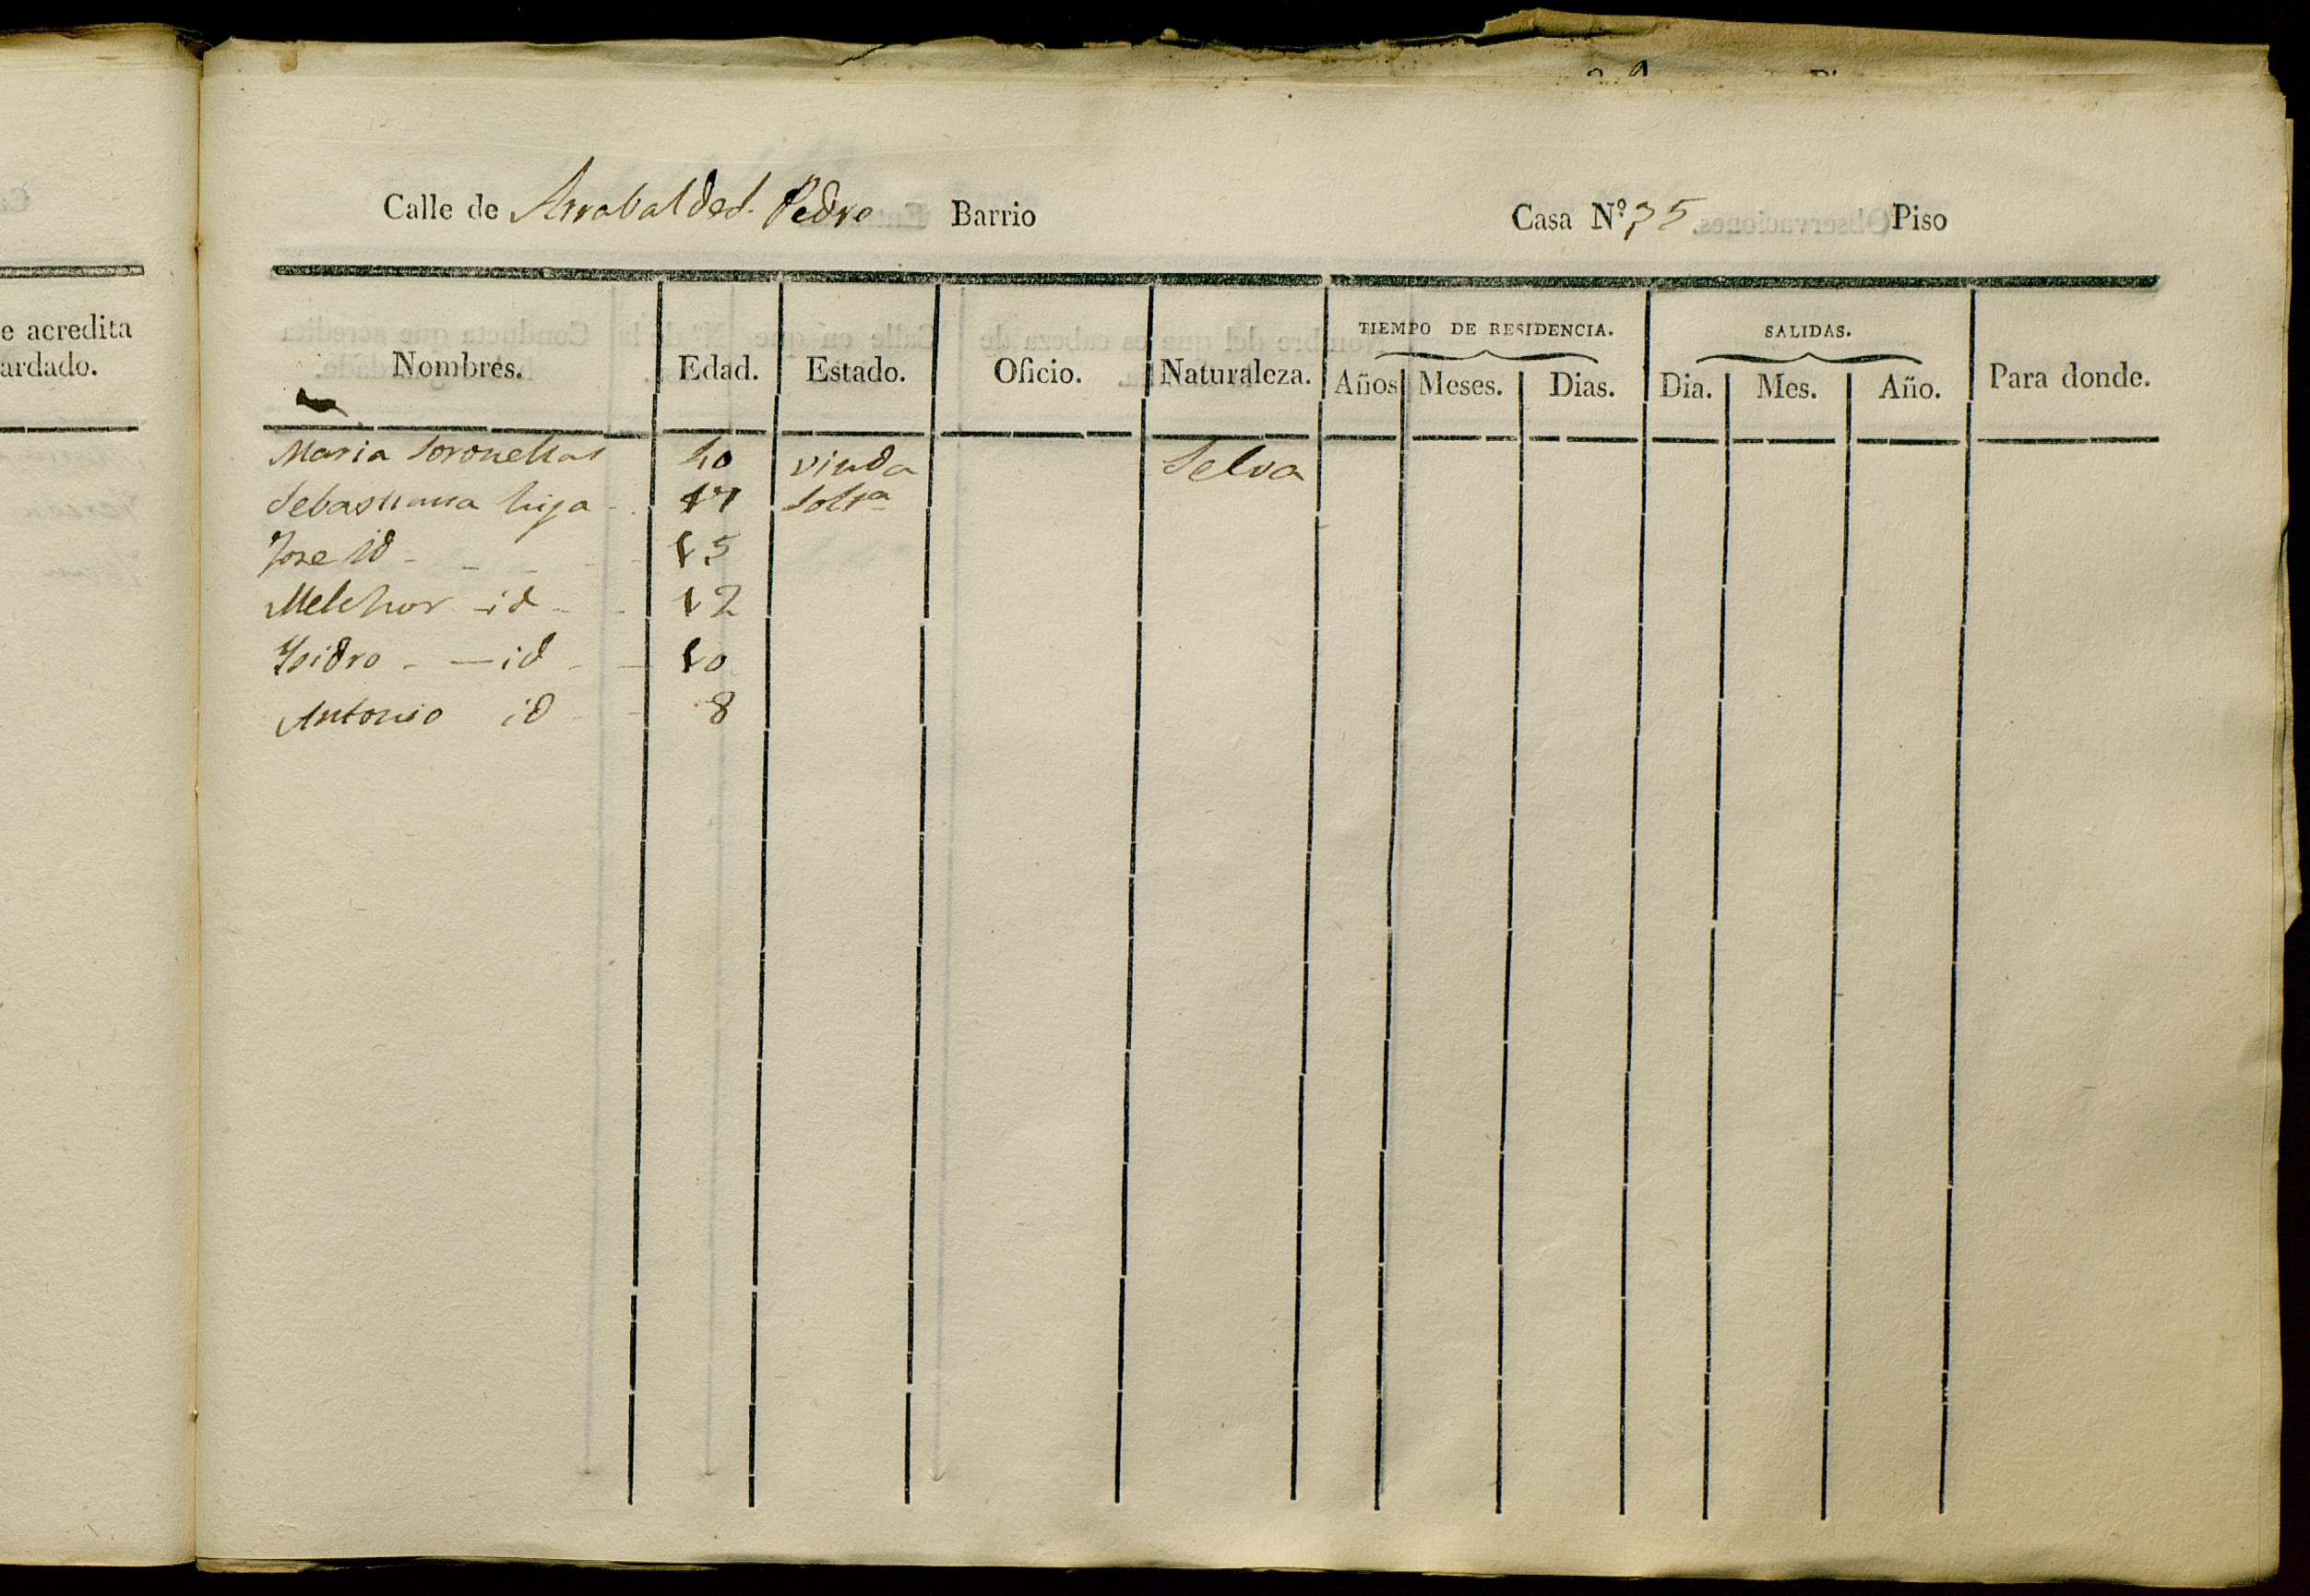 e acredita
ardado.
Calle de Arrabal de S. Pedro Barrio Casa Nº 35 Piso
Nombres. Edad. Estado. Oficio. Naturaleza. TIEMPO DE RESIDENCIA. SALIDAS. Para donde.
Años Meses. Dias. Dia. Mes. Año.
Maria Soronellas 40 viuda Selva
Sebastiana hija 17 Soltª
Jose id 15
Melchor id 12
Ysidro id 10
Antonio id 8